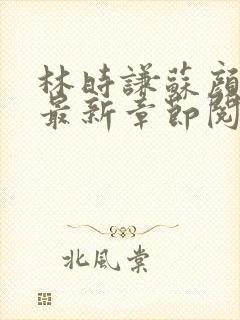 林时謙蘇顔
最新章節閱
北風棠